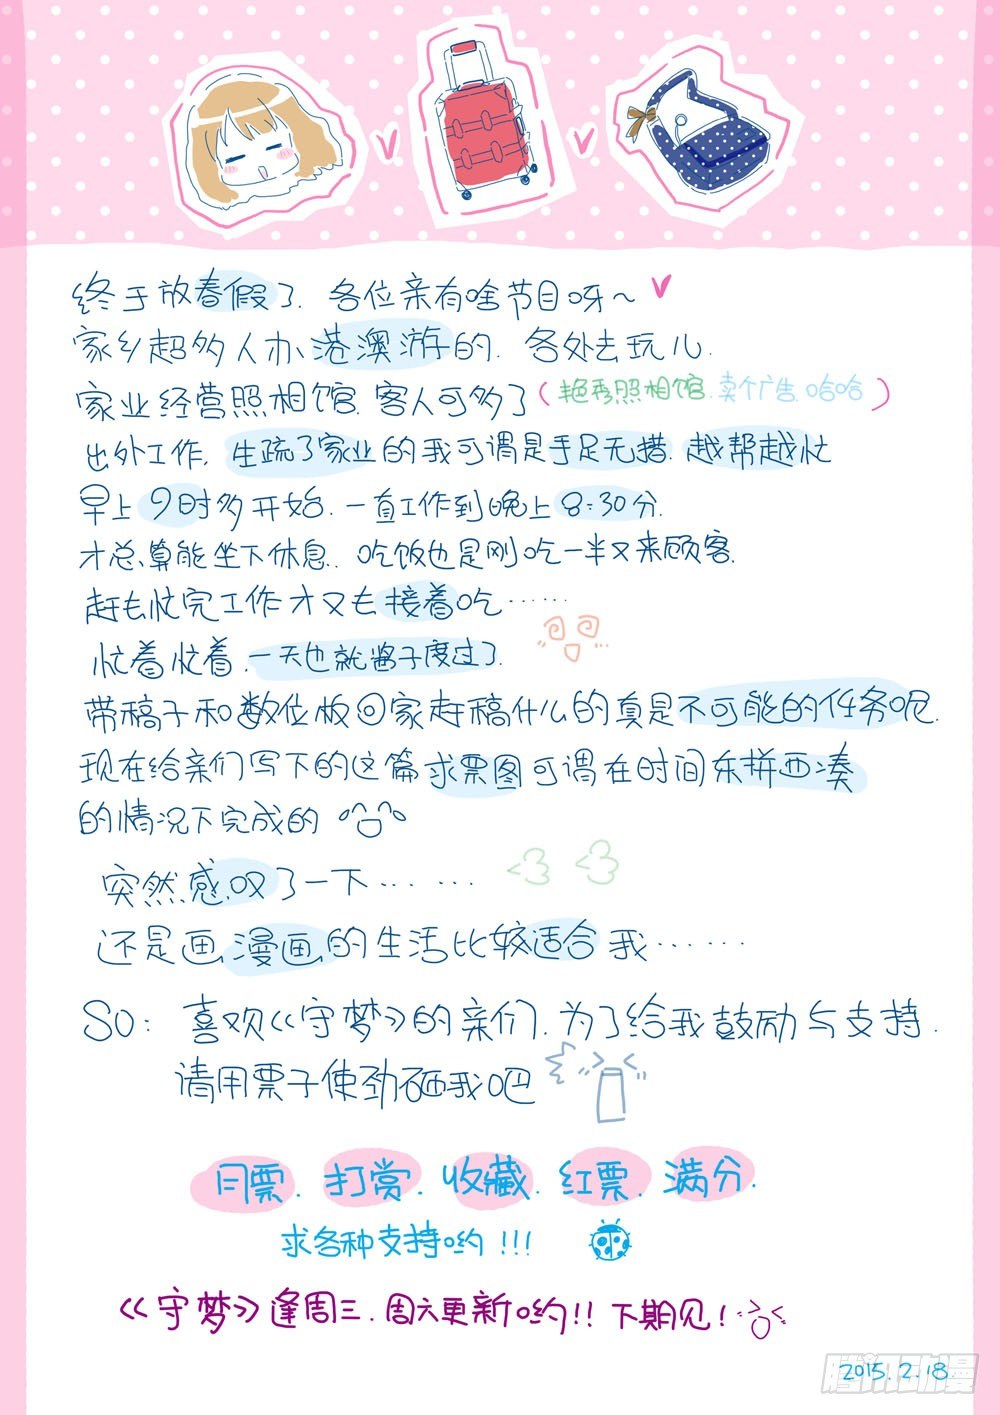 终于放春假了. 各位亲有啥节目呀~
家乡超多人办港澳游的. 各处去玩儿.
家业经营照相馆. 客人可多了(艳秀照相馆.卖个广告.哈哈)
出外工作. 生疏了家业的我可谓是手足无措. 越帮越忙
早上9时多开始. 一直工作到晚上8:30分.
才总算能坐下休息. 吃饭也是刚吃一半又来顾客.
赶去忙完工作才又去接着吃……
忙着忙着.一天也就酱子度过了.
带稿子和数位板回家赶稿什么的真是不可能的任务呢.
现在给亲们写下的这篇求票图可谓在时间东拼西凑
的情况下完成的
突然感叹了一下……
还是画漫画的生活比较适合我……
SO: 喜欢《守梦》的亲们.为了给我鼓励与支持.
请用票子使劲砸我吧
月票. 打赏. 收藏. 红票. 满分.
求各种支持哟!!!
《守梦》逢周三.周六更新哟!! 下期见!
2015.2.18
腾讯动漫